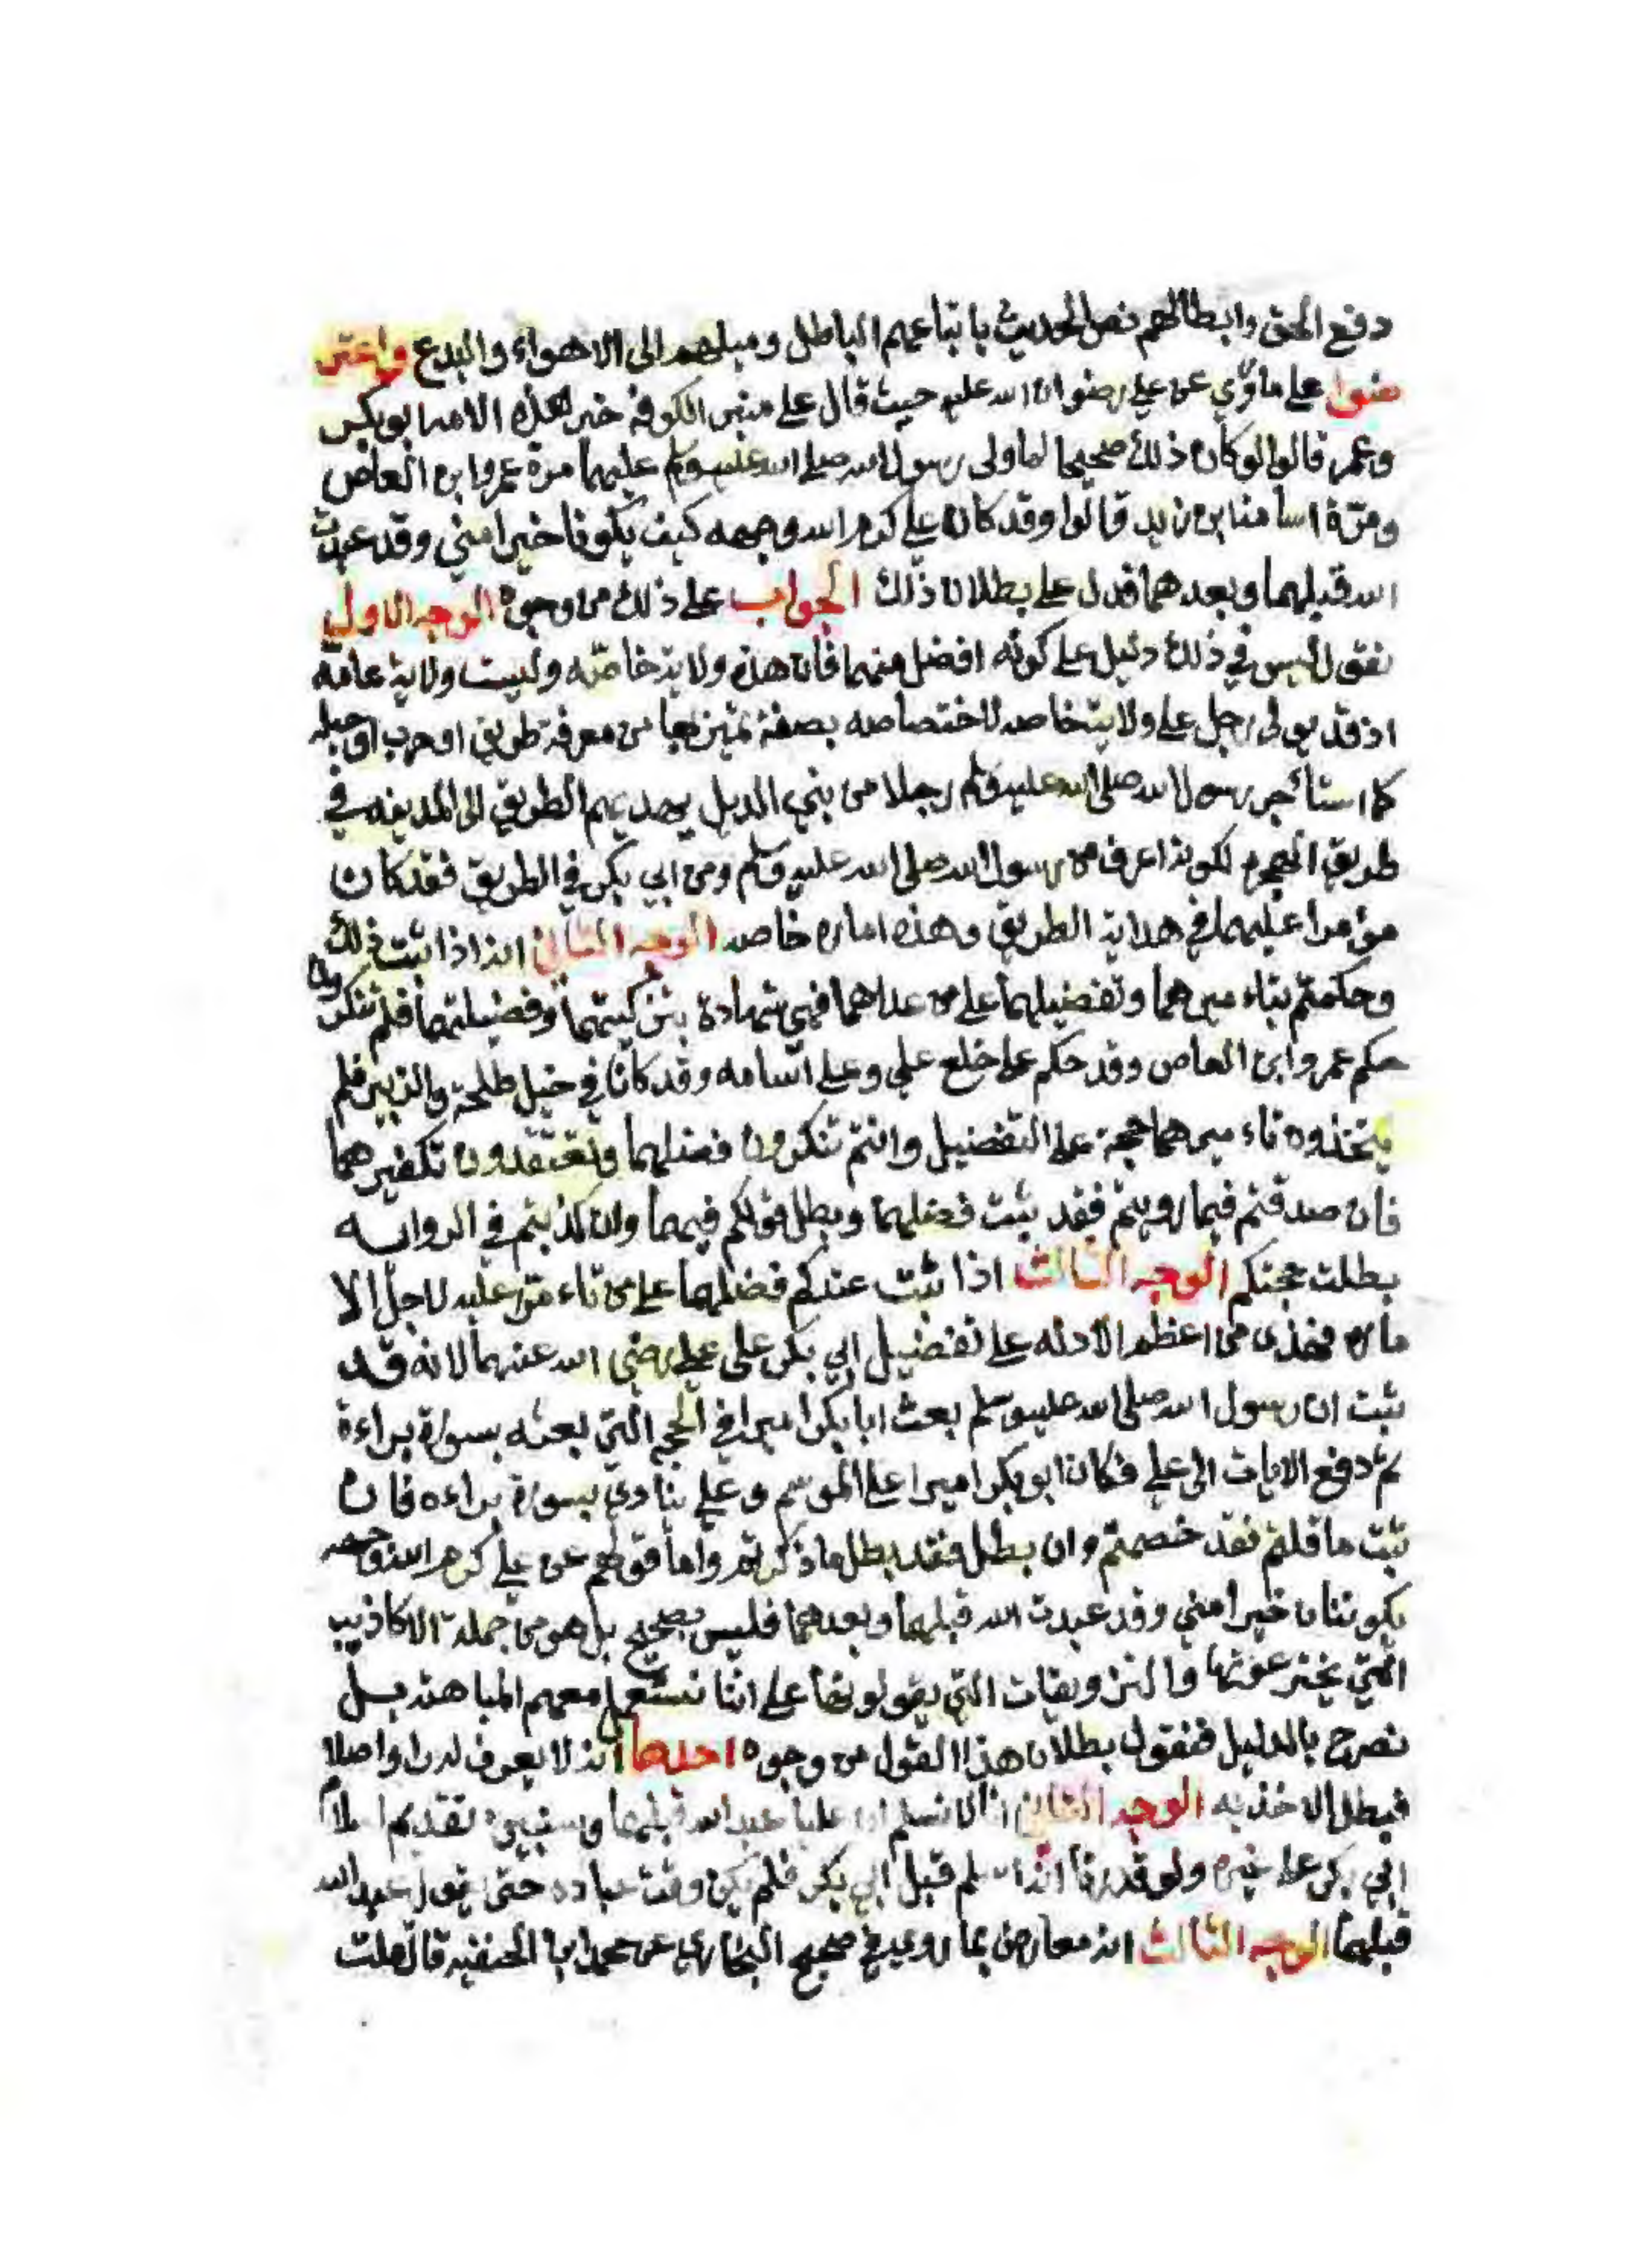 دفع الحق وابطالهم نص الحديث باتباعهم الباطل وميلهم الى الاهواء والبدع واعتر
ضوا على ماروي عن علي رضوان الله عليه حيث قال على منبر الكوفة خير هذه الامه ابو بكر
وعمر قالوا لو كان ذلك صحيحا لما ولى رسول الله صلى الله عليه وسلم عليهما مرة عمروا بن العاص
ومرة اسامة ابن زيد قالوا وقد كان علي كرم الله وجهه كيف يكونا خيرا مني وقد عبدت
الله قبلهما وبعدهما فدل على بطلان ذلك الجواب على ذلك من وجوه الوجه الاول
نقول ليس في ذلك دليل على كونه افضل منهما فان هذه ولاية خاصه وليست ولاية عامة
اذ قد يولى رجل على ولاية خاصه لاختصاصه بصفة تميز بها من معرفة طريق او حرب او حيله
كما استأجر رسول الله صلى الله عليه وسلم رجلا من بني الديل يهديهم الطريق الى المدينه في
طريق الهجره لكونه اعرف من رسول الله صلى الله عليه وسلم ومن ابي بكر في الطريق فقد كان
مؤمرا عليهما في هداية الطريق وهذه اماره خاصه الوجه الثاني انه اذا ثبت ذلك
وحكمتم بتاءميرهما وتفضيلهما على من عداهما فهي شهادة بتزكيتهما وفضيلتهما فلم تنكروا
حكم عمر وابن العاص وقد حكم على خلع علي وعلى اسامه وقد كانا في خيل طلحة والزبير فلم
يتخذوه تاءميرهما حجة على التفضيل وانتم تنكرون فضلهما وتعتقدون تكفيرهما
فان صدقتم فيما رويتم فقد ثبت فضلهما وبطل قولكم فيهما وان كذبتم في الروايه
بطلت حجتكم الوجه الثالث اذا ثبت عندكم فضلهما على من تاءمر عليه لاجل الا
ماره فهذي من اعظم الادله على تفضيل ابي بكر على علي رضي الله عنهما لانه قد
ثبت ان رسول الله صلى الله عليه وسلم بعث ابا بكر اميرا في الحج التي بعثه بسورة براءة
ثم دفع الايات الى علي فكان ابو بكر اميرا على الموسم وعلي ينادي بسورة براءه فان
ثبت ما قلتم فقد خصمتم وان بطل فقد بطل ما ذكرتم واما قولهم عن علي كرم الله وجهه
يكونان خيرا مني وقد عبدت الله قبلهما وبعدهما فليس بصحيح بل هو من جملة الاكاذيب
التي يخترعونها والتزويقات التي يقولونها على اننا نستعمل معهم المباهته بل
نصرح بالدليل فنقول بطلان هذا القول من وجوه احدها انه لا يعرف له را واصلا
فبطل الاخذ به الوجه الثاني انا لا نسلم ان عليا عبد الله قبلهما وسنبين تقديم اسلام
ابي بكر على غيره ولو قدرنا انه اسلم قبل ابي بكر فلم يكن وقت عباده حتى يقول عبد الله
قبلهما الوجه الثالث انه معارض بما روي في صحيح البخاري عن محمد ابن الحنفيه قال قلت